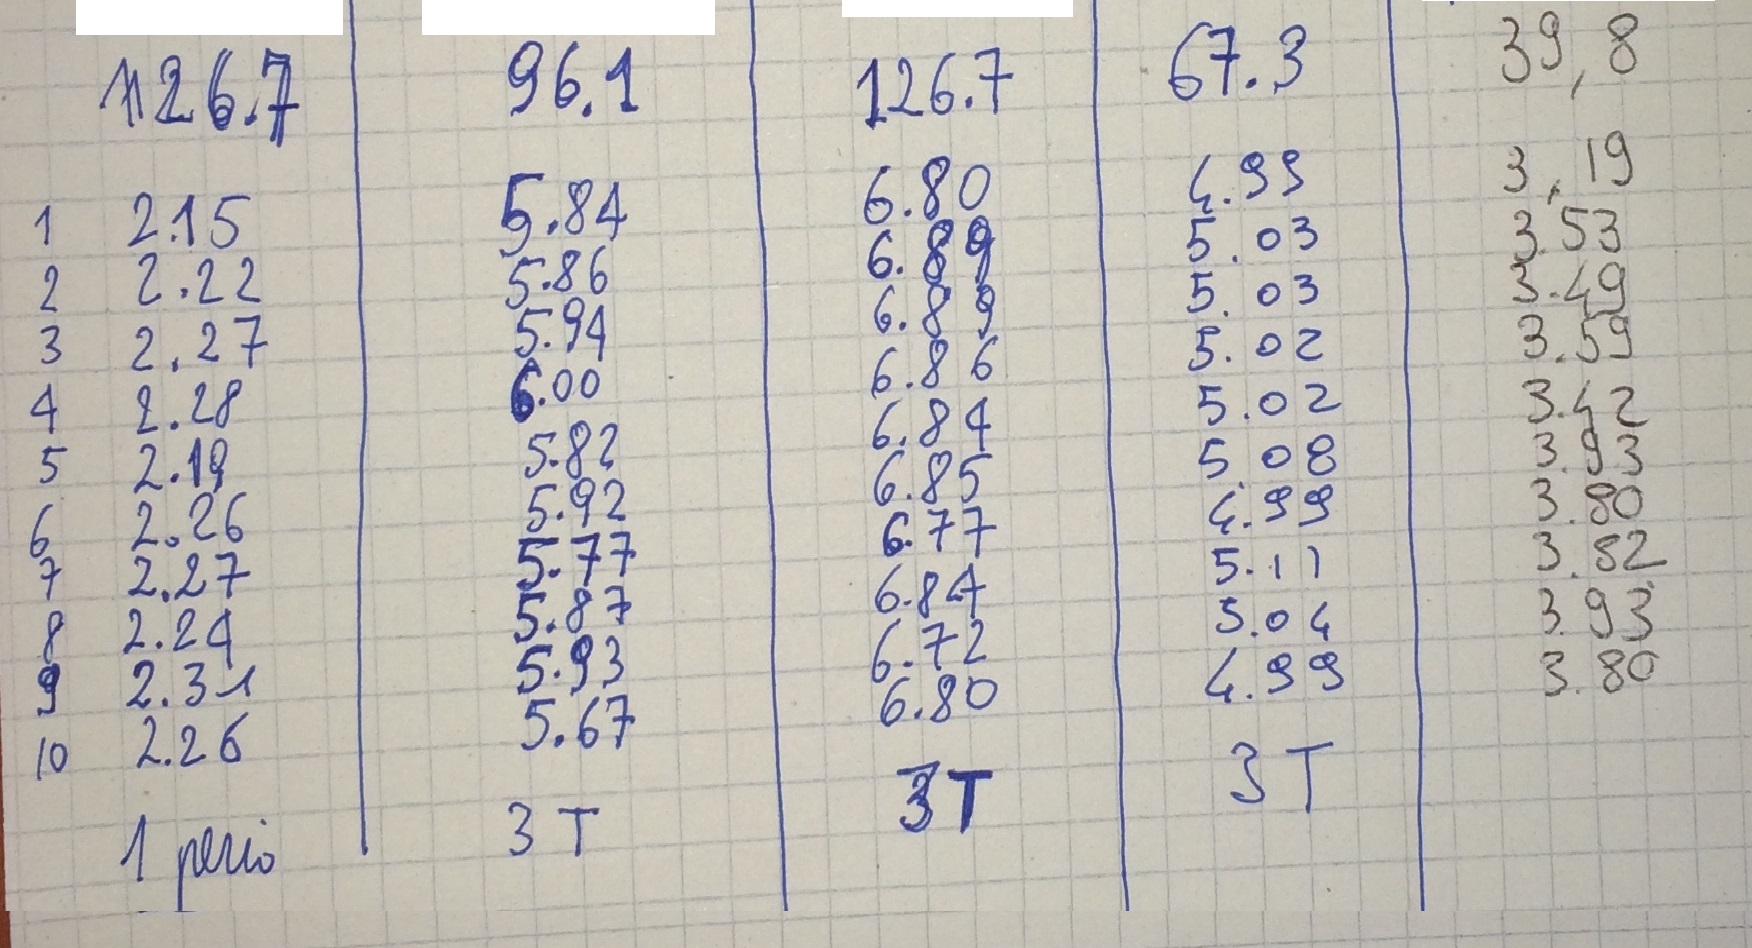 126.7 96.1 126.7 67.3 39,8
1 2.15 5.84 6.80 4.99 3,19
2 2.22 5.86 6.89 5.03 3.53
3 2.27 5.94 6.89 5.03 3.49
4 2.28 6.00 6.86 5.02 3.59
5 2.19 5.82 6.84 5.02 3.42
6 2.26 5.92 6.85 5.08 3.93
7 2.27 5.77 6.77 4.99 3.80
8 2.24 5.87 6.84 5.11 3.82
9 2.31 5.93 6.72 5.04 3.93
10 2.26 5.67 6.80 4.99 3.80
1 perio 3T 3T 3T